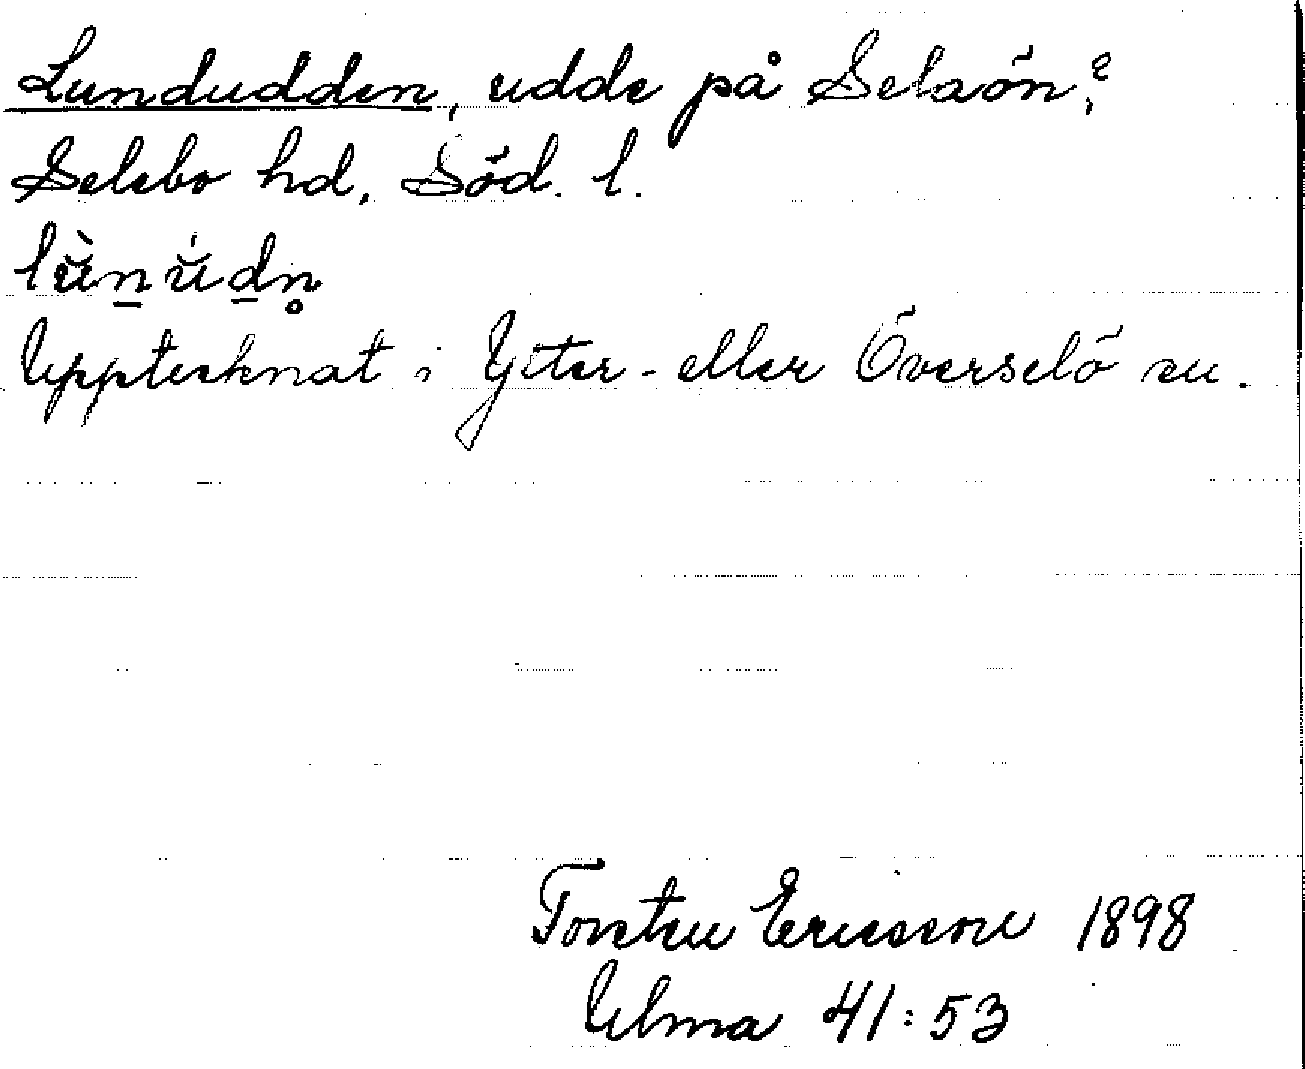 Lundudden, udde på Selaön?,
Selebo hd, Söd. l.
lŭ̀n̠ŭ́d̠n̥
Upptecknat i Ytter- eller Överselö sn.
Torsten Ericsson 1898
Ulma 41:53